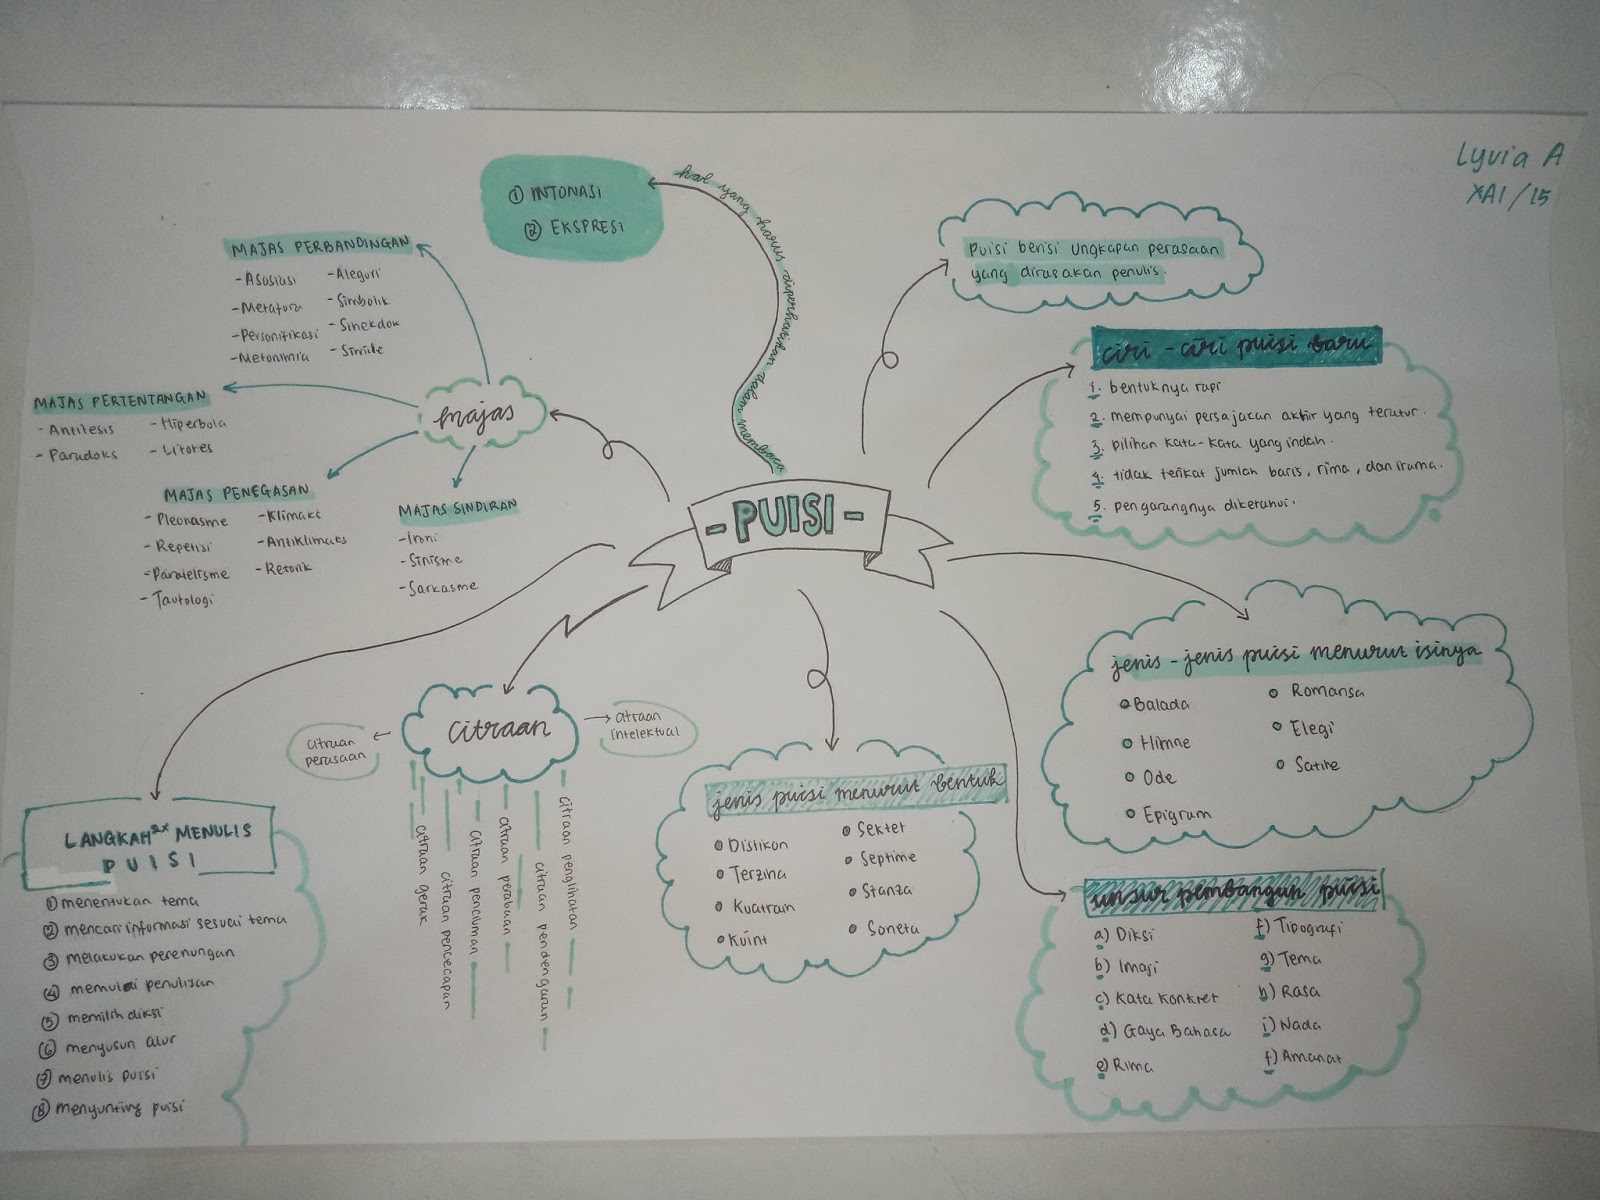 Lyvia A
XA1/15
- PUISI -
hal yang harus diperhatikan dalam membaca
① INTONASI
② EKSPRESI
Puisi berisi ungkapan perasaan
yang dirasakan penulis.
ciri - ciri puisi baru
1. bentuknya rapi
2. mempunyai persajakan akhir yang teratur.
3. pilihan kata-kata yang indah.
4. tidak terikat jumlah baris, rima, dan irama.
5. pengarangnya diketahui.
jenis - jenis puisi menurut isinya
Balada
Himne
Ode
Epigram
Romansa
Elegi
Satire
unsur pembangun puisi
a) Diksi
b) Imaji
c) Kata Konkret
d) Gaya Bahasa
e) Rima
f) Tipografi
g) Tema
h) Rasa
i) Nada
f) Amanat
jenis puisi menurut bentuk
Distikon
Terzina
Kuatrain
Kuint
Sektet
Septime
Stanza
Soneta
citraan
citraan
perasaan
citraan
intelektual
citraan gerak
citraan pencecapan
citraan penciuman
citraan perabaan
citraan pendengaran
citraan penglihatan
LANGKAH2x MENULIS
PUISI
① menentukan tema
② mencari informasi sesuai tema
③ melakukan perenungan
④ memulai penulisan
⑤ memilih diksi
⑥ menyusun alur
⑦ menulis puisi
⑧ menyunting puisi
majas
MAJAS PERBANDINGAN
- Asosiasi
- Metafora
- Personifikasi
- Metonimia
- Alegori
- Simbolik
- Sinekdok
- Simile
MAJAS PERTENTANGAN
- Antitesis
- Paradoks
- Hiperbola
- Litotes
MAJAS PENEGASAN
- Pleonasme
- Repetisi
- Paralelisme
- Tautologi
- Klimaks
- Antiklimaks
- Retorik
MAJAS SINDIRAN
- Ironi
- Sinisme
- Sarkasme